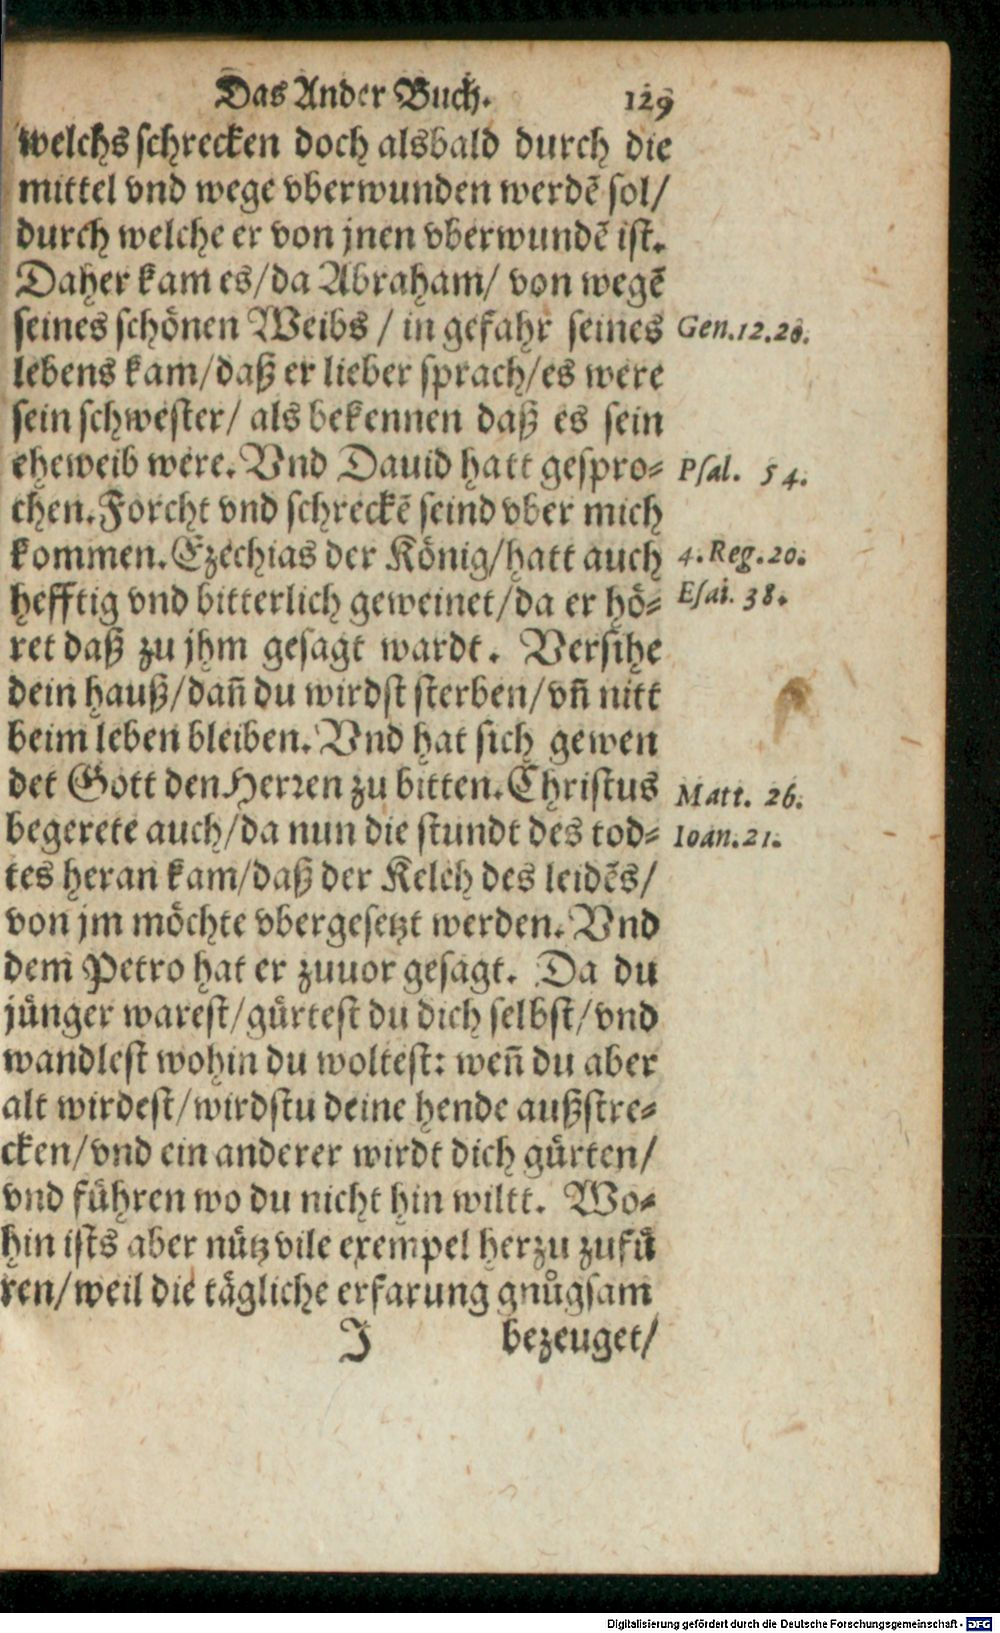 Das Ander Buch. 129
welchs schrecken doch alsbald durch die
mittel vnd wege vberwunden werdē sol/
durch welche er von jnen vberwundē ist.
Daher kam es/da Abraham/ von wegē
seines schönen Weibs / in gefahr seines Gen.12.20.
lebens kam/daß er lieber sprach/es were
sein schwester/ als bekennen daß es sein
eheweib were. Vnd Dauid hatt gespro- Psal. 54.
chen. Forcht vnd schreckē seind vber mich
kommen. Ezechias der König/hatt auch 4.Reg.20.
hefftig vnd bitterlich geweinet/da er hö- Esai. 38.
ret daß zu jhm gesagt wardt. Versihe
dein hauß/dañ du wirdst sterben/vñ nitt
beim leben bleiben. Vnd hat sich gewen
det Gott den Herren zu bitten. Christus Matt. 26.
begerete auch/da nun die stundt des tod- Ioan.21.
tes heran kam/daß der Kelch des leidēs/
von jm möchte vbergesetzt werden. Vnd
dem Petro hat er zuuor gesagt. Da du
jünger warest/gürtest du dich selbst/vnd
wandlest wohin du woltest: weñ du aber
alt wirdest/wirdstu deine hende außstre-
cken/vnd ein anderer wirdt dich gürten/
vnd führen wo du nicht hin wiltt. Wo-
hin ists aber nütz vile exempel herzu zufü
ren/weil die tägliche erfarung gnůgsam
J bezeuget/
Digitalisierung gefördert durch die Deutsche Forschungsgemeinschaft - DFG